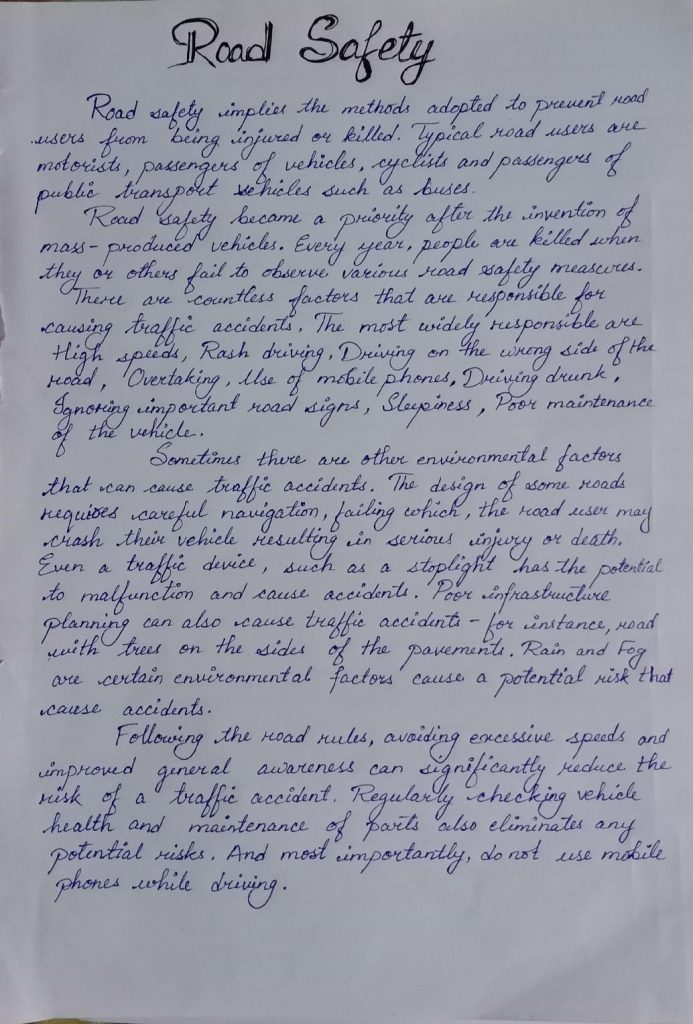 Road Safety
Road safety implies the methods adopted to prevent road
users from being injured or killed. Typical road users are
motorists, passengers of vehicles, cyclists and passengers of
public transport vehicles such as buses.
Road safety became a priority after the invention of
mass-produced vehicles. Every year, people are killed when
they or others fail to observe various road safety measures.
There are countless factors that are responsible for
causing traffic accidents. The most widely responsible are
High speeds, Rash driving, Driving on the wrong side of the
road, Overtaking, Use of mobile phones, Driving drunk,
Ignoring important road signs, Sleepiness, Poor maintenance
of the vehicle.
Sometimes there are other environmental factors
that can cause traffic accidents. The design of some roads
requires careful navigation, failing which, the road user may
crash their vehicle resulting in serious injury or death.
Even a traffic device, such as a stoplight has the potential
to malfunction and cause accidents. Poor infrastructure
planning can also cause traffic accidents - for instance, road
with trees on the sides of the pavements. Rain and Fog
are certain environmental factors cause a potential risk that
cause accidents.
Following the road rules, avoiding excessive speeds and
improved general awareness can significantly reduce the
risk of a traffic accident. Regularly checking vehicle
health and maintenance of parts also eliminates any
potential risks. And most importantly, do not use mobile
phones while driving.